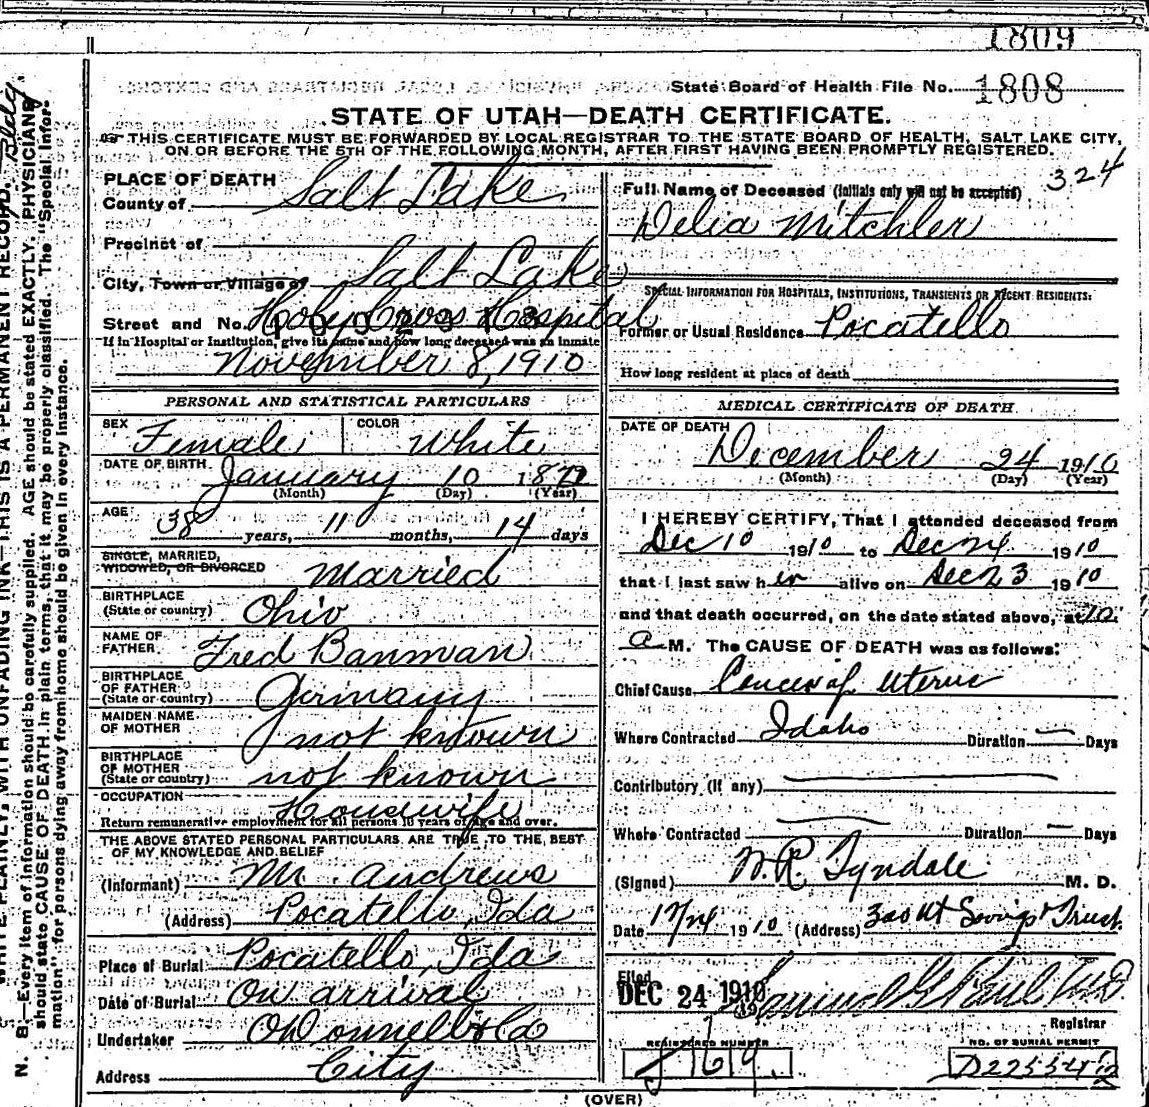 1809
State Board of Health File No. 1808
STATE OF UTAH—DEATH CERTIFICATE.
THIS CERTIFICATE MUST BE FORWARDED BY LOCAL REGISTRAR TO THE STATE BOARD OF HEALTH, SALT LAKE CITY,
ON OR BEFORE THE 5TH OF THE FOLLOWING MONTH, AFTER FIRST HAVING BEEN PROMPTLY REGISTERED.
PLACE OF DEATH
County of Salt Lake
Precinct of
City, Town or Village of Salt Lake
Street and No. Holy Cross Hospital
If in Hospital or Institution, give its name and how long deceased was an inmate
November 8, 1910
PERSONAL AND STATISTICAL PARTICULARS
SEX Female COLOR White
DATE OF BIRTH January 10 1872
(Month) (Day) (Year)
AGE 38 years, 11 months, 14 days
SINGLE, MARRIED,
WIDOWED, OR DIVORCED Married
BIRTHPLACE
(State or country) Ohio
NAME OF
FATHER Fred Banman
BIRTHPLACE
OF FATHER
(State or country) Germany
MAIDEN NAME
OF MOTHER not known
BIRTHPLACE
OF MOTHER
(State or country) not known
OCCUPATION Housewife
Return remunerative employment for all persons 10 years of age and over.
THE ABOVE STATED PERSONAL PARTICULARS ARE TRUE TO THE BEST
OF MY KNOWLEDGE AND BELIEF
(Informant) Mr. Andrews
(Address) Pocatello, Ida
Place of Burial Pocatello, Ida
Date of Burial On arrival
Undertaker O'Donnell & Co
Address City
324
Full Name of Deceased (Initials only will not be accepted)
Delia Mitchler
SPECIAL INFORMATION FOR HOSPITALS, INSTITUTIONS, TRANSIENTS OR RECENT RESIDENTS:
Former or Usual Residence Pocatello
How long resident at place of death
MEDICAL CERTIFICATE OF DEATH
DATE OF DEATH December 24 1910
(Month) (Day) (Year)
I HEREBY CERTIFY, That I attended deceased from
Dec 10 1910 to Dec 24 1910
that I last saw her alive on Dec 23 1910
and that death occurred, on the date stated above, at 10
a M. The CAUSE OF DEATH was as follows:
Chief Cause Cancer of Uterus
Where Contracted Idaho Duration — Days
Contributory (If any)
Where Contracted Duration — Days
(Signed) W. R. Tyndale M. D.
Date 12/24 1910 (Address) 300 Ut Savings & Trust
Filed
DEC 24 1910 Samuel G Paul M.D.
Registrar
REGISTERED NUMBER
NO. OF BURIAL PERMIT
(OVER)
Bldg.
WRITE PLAINLY, WITH UNFADING INK—THIS IS A PERMANENT RECORD.
N. B.—Every item of information should be carefully supplied. AGE should be stated EXACTLY. PHYSICIANS
should state CAUSE OF DEATH in plain terms, that it may be properly classified. The "Special Infor-
mation" for persons dying away from home should be given in every instance.